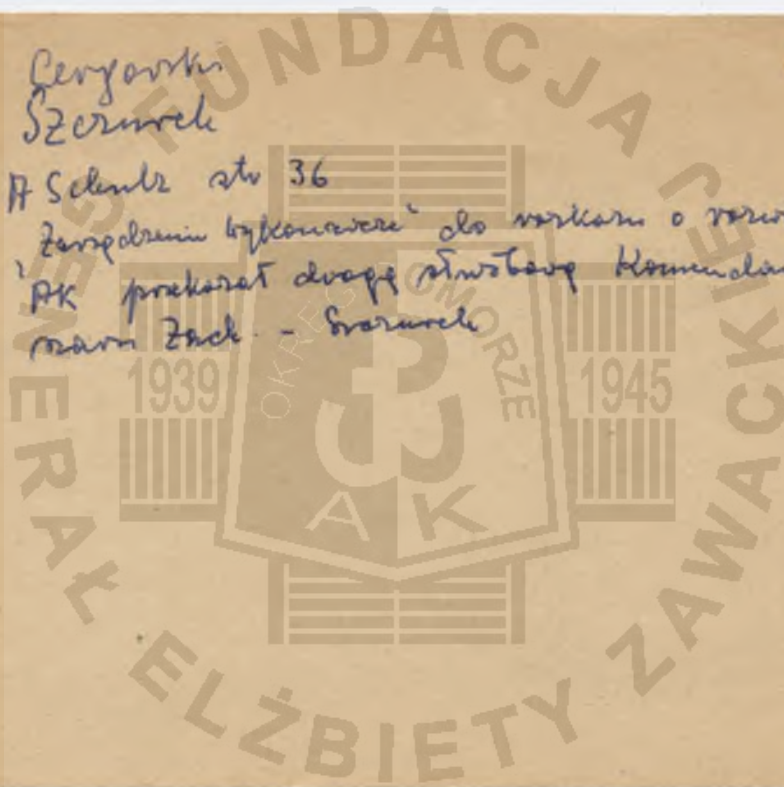 Szczurek
A Schulz str 36
"Zarządzenie wykonawcze" do rozkazu o
AK przekazał drogą służbową
Zach. - Szczurek
FUNDACJA
GENERAŁ ELŻBIETY ZAWACKIEJ
OKRĘG POMORZE
1939
1945
AK